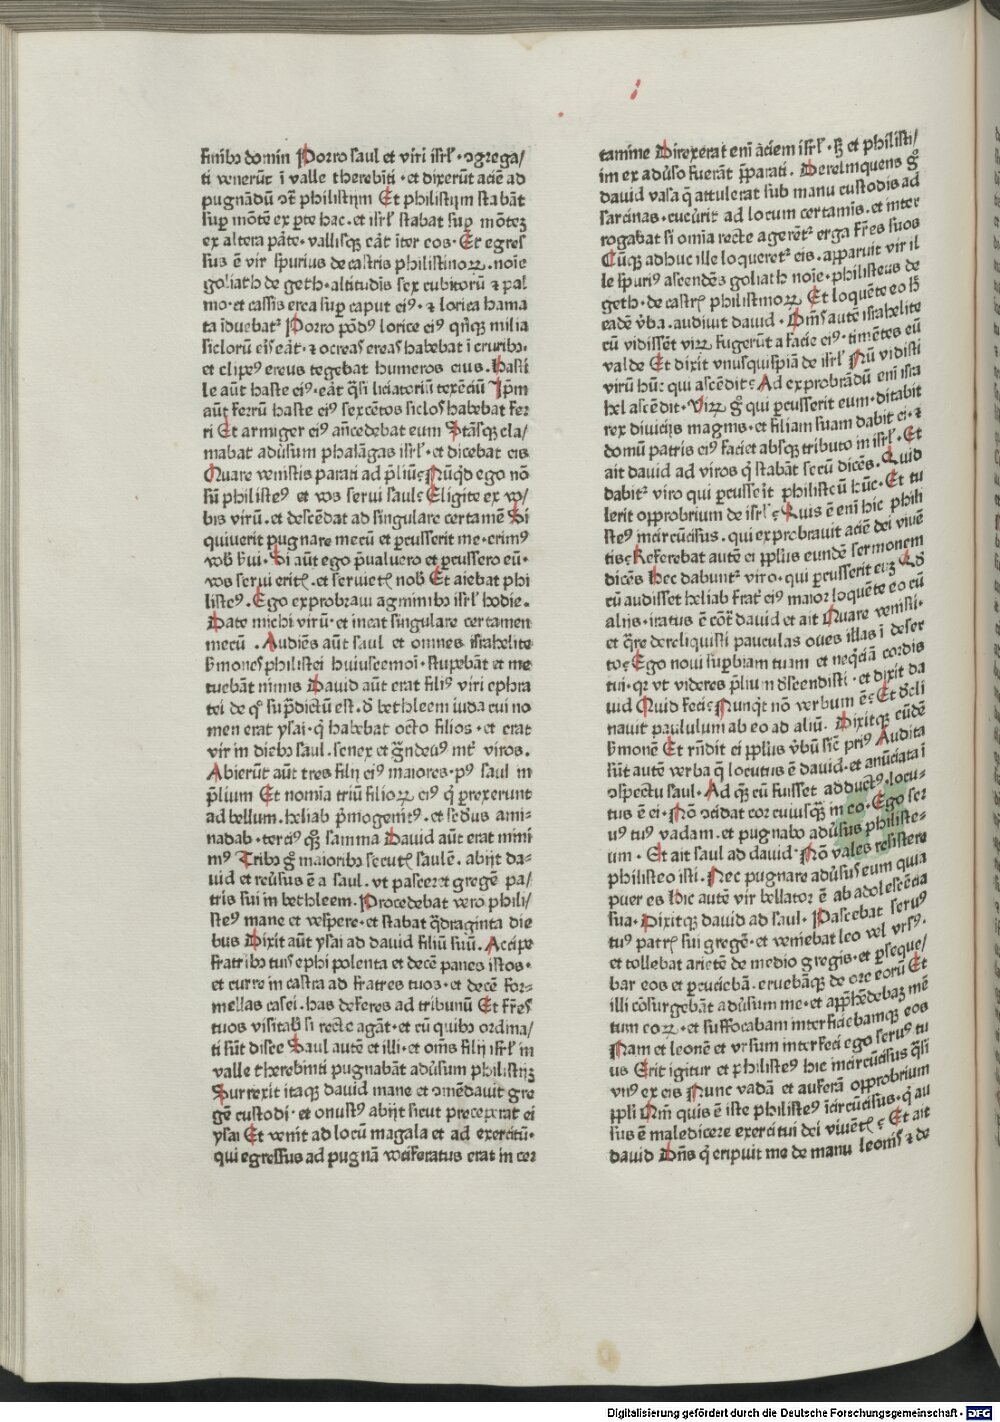 finibɜ domin Porro saul et viri isrl̄ · ꝯgrega/
ti venerūt ī valle therebīti · et dixerūt aciē ad
pugnādū ꝯt̄ philistijm Et philistijm stabāt
suꝑ mōtē ex ꝑte hac · et isrl̄ stabat suꝑ mōteꝫ
ex altera pāte · vallisqꝫ eāt īter eos · Et egres
sus ē vir spurius de castris philistinoꝝ · noīe
goliath de geth · altitudīs sex cubitorū ⁊ pal
mo · et cassis erea suꝑ caput eiꝰ · ⁊ lorica hama
ta īduebatᷣ Porro pōdꝰ lorice eiꝰ qīqꝫ milia
siclorū eīs eāt · ⁊ ocreas ereas habebat ī cruribɜ ·
et clipeꝰ ereus tegebat humeros eius · Hasti
le aūt haste eiꝰ · eāt q̄si liciatoriū texēciū Ip̄m
aūt ferrū haste eiꝰ sexcētos siclos habebat fer
ri Et armiger eiꝰ añcedebat eum Stāsqꝫ cla/
mabat adūsum phalāgas isrl̄ · et dicebat eis
Quare venistis parati ad p̄liū Nūq̄d ego nō
sū philisteꝰ et vos servi saul Eligite ex vo/
bis virū · et descēdat ad singulare certamē Si
quiverit pugnare mecū et ꝑcusserit me · erimꝰ
vob̄ s̄vi · Si aūt ego p̄valuero et ꝑcussero eū ·
vos servi eritꝭ · et servietꝭ nob̄ Et aiebat phi
listeꝰ · Ego exprobravi agminibɜ isrl̄ hodie ·
Date michi virū · et ineat singulare certamen
mecū · Audiēs aūt saul et omnes israhelite
s̄mones philistei huiuscemoī · stupebāt et me
tuebāt nimis David aūt erat filiꝰ viri ephra
tei de qͦ sup̄dictū est · ð bethleem iuda cui no
men erat ysai · q̄ habebat octo filios · et erat
vir in diebɜ saul · senex et ḡndeuꝰ īnt̄ viros ·
Abierūt aūt tres filij eiꝰ maiores · pꝰ saul in
p̄lium Et nomīa triū filioꝝ eiꝰ q̄ ꝑrexerunt
ad bellum · heliab p̄mogenitꝰ · et sēdus ami=
nadab · terciꝰ qͦꝫ samma David aūt erat mini
mꝰ Tribɜ ḡ maioribɜ secutꝭ saulē · abijt da=
vid et reūsus ē a saul · vt pasceret gregē pa/
tris sui in bethleem · Procedebat vero phili/
steꝰ mane et vespere · et stabat q̄draginta die
bus Dixit aūt ysai ad david filiū suū · Accipe
fratribɜ tuis ephi polenta et decē panes istos ·
et curre in castra ad fratres tuos · et decē for=
mellas casei · has deferes ad tribunū Et fr̄es
tuos visitab̄ si recte agāt · et cū quibɜ ordina/
ti sūt disce Saul autē et illi · et om̄s filij isrl̄ in
valle therebinti pugnabāt adūsum philistijꝫ
Surrexit itaqꝫ david mane et ꝯmēdavit gre
gē custodi · et onustꝰ abijt sicut preceperat ei
ysai Et venit ad locū magala et ad exercitū ·
qui egressus ad pugnā vociferatus erat in cer
tamine Direxerat enī āciem isrl̄ · sꝫ et philisti/
im ex adūso fuerāt p̄parati · Derelinquens gͦ
david vasa q̄ attulerat sub manu custodis ad
sarcinas · cucurit ad locum certamis · et inter
rogabat si omīa recte agerētᷣ erga fr̄es suos
Cūqꝫ adhuc ille loqueretᷣ eis · apparuit vir il
le spuriꝰ ascendēs goliath noīe · philisteus de
geth · de castrꝭ philistinoꝝ Et loquēte eo h̄
eadē v̄ba · audivit david · Om̄s autē israhelite
cū vidissēt virꝫ fugerūt a facie eiꝰ · timētes eū
valde Et dixit vnusquispiā de isrl̄ Nū vidisti
virū hūc qui ascēdit Ad exprobrādū enī isra
hel ascēdit · Virꝫ gͦ qui ꝑcusserit eum · ditabit
rex divicijs magnis · et filiam suam dabit ei · ⁊
domū patris eiꝰ faciet absqꝫ tributo in isrl̄ · Et
ait david ad viros q̄ stabāt secū dicēs · Quid
dabitᷣ viro qui ꝑcusseīt philisteū hūc · Et tu
lerit opprobrium de isrl̄ Quis ē enī hic phili
steꝰ incircūcisus · qui exprobravit aciē dei vivē
tis Referebat autē ei pplūs eundē sermonem
dicēs Hec dabuntᷣ viro · qui ꝑcusserit euꝫ Qð
cū audisset heliab frat̄ eiꝰ maior loquēte eo cū
alijs · iratus ē cōt̄ david et ait Quare venisti ·
et q̄re dereliquisti pauculas oves illas ī deser
to Ego novi suꝑbiam tuam et neq̄ciā cordis
tui · qꝛ vt videres p̄lium dscendisti · et dixit da
vid Quid feci Nunq̄t nō verbum ē Et dcli
navit paululum ab eo ad aliū · Dixitqꝫ eūdē
s̄monē Et rn̄dit ei pplūs v̄bū sic̄ priꝰ Audita
sūt autē verba q̄ locutus ē david · et anūciata ī
ꝯspectu saul · Ad qꝫ cū fuisset adductꝰ · locu=
tus ē ei · Nō ꝯcidat cor cuiusqꝫ in eo · Ego ser
vꝰ tuꝰ vadam · et pugnabo adūsus philiste=
um · Et ait saul ad david · Nō vales resistere
philisteo isti · Nec pugnare adūsus eum quia
puer es Hic autē vir bellator ē ab adolescētia
sua · Dixitqꝫ david ad saul · Pascebat servꝰ
tuꝰ patrꝭ sui gregē · et veniebat leo vel vrsꝰ ·
et tollebat arietē de medio gregis · et ꝑseque/
bar eos et ꝑcuciebā · eruebāqꝫ de ore eorū Et
illi cōsurgebāt adūsum me · et appͤhēdebaꝫ mē
tum eoꝝ · et suffocabam interficiebamqꝫ eos
Nam et leonē et vrsum interfeci ego servꝰ tu
us Erit igitur et philisteꝰ hic incircūcisus q̄si
vnꝰ ex eis Nunc vadā et auferā opprobrium
pplī Qm̄ quis ē iste philisteꝰ īcircūcisus · q̄ au
sus ē maledicere exercitui dei vivētꝭ Et ait
david Dn̄s q̄ eripuit me de manu leonis ⁊ de
Digitalisierung gefördert durch die Deutsche Forschungsgemeinschaft - DFG